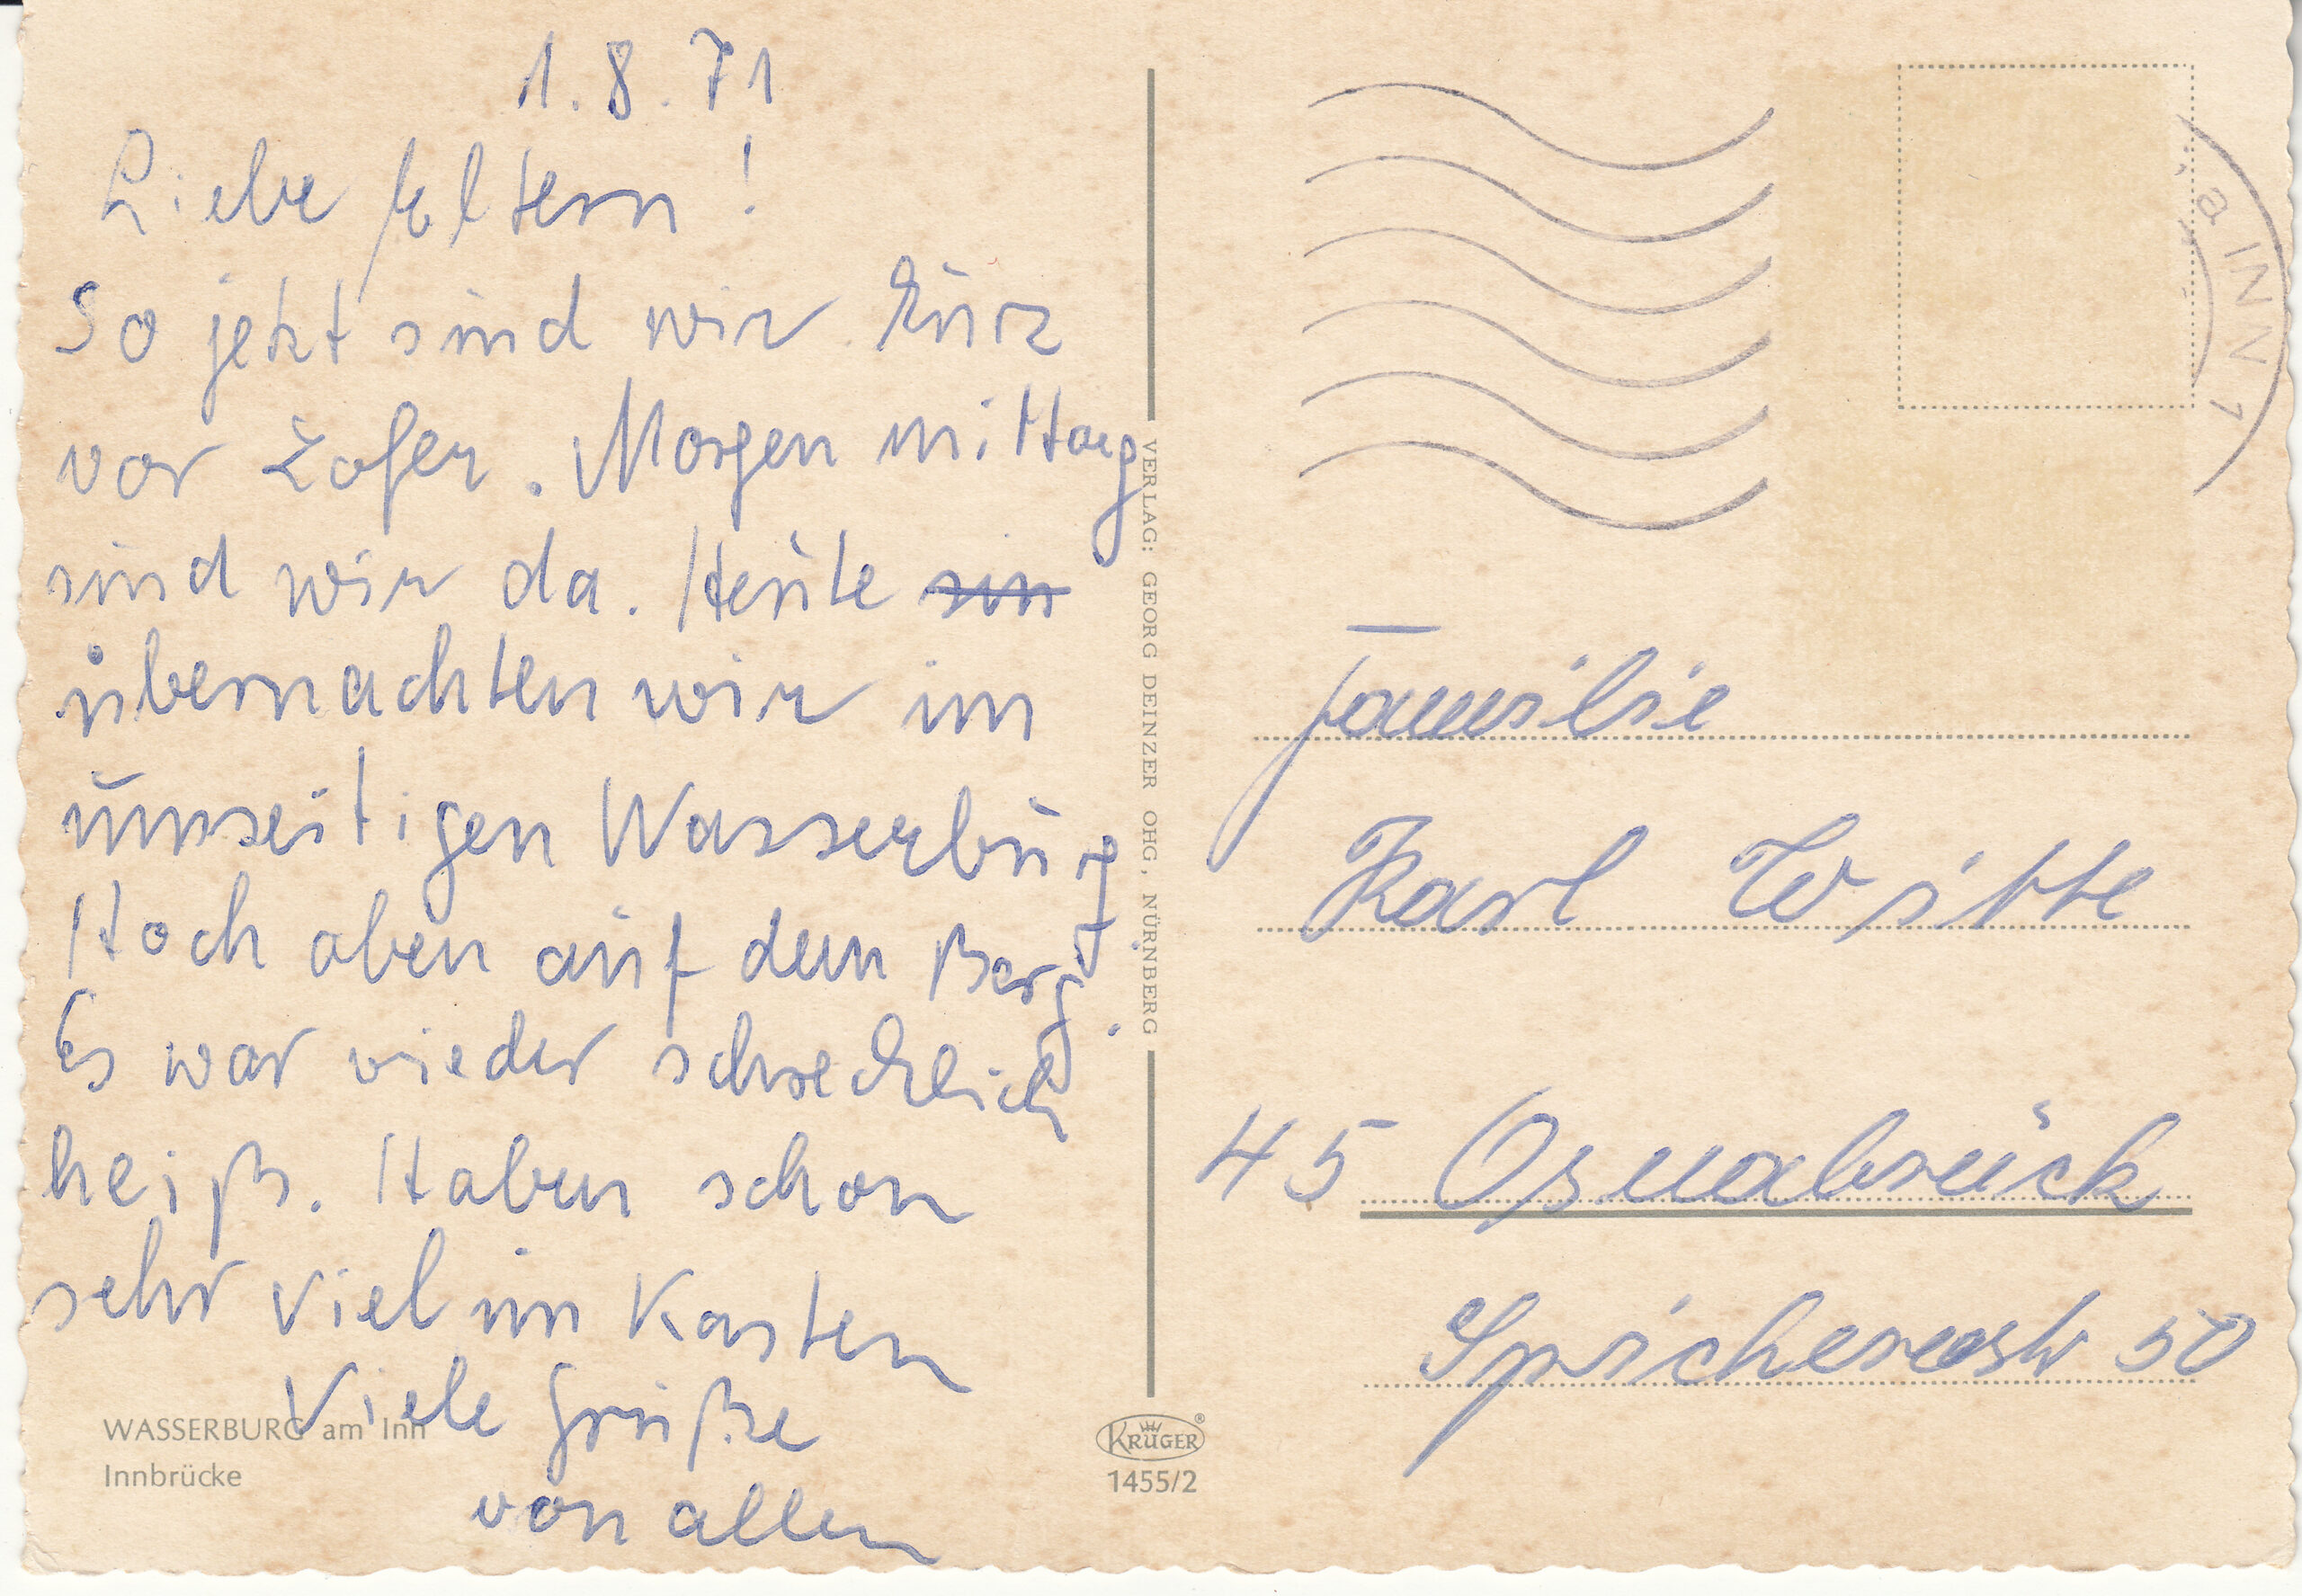 1.8.71
Liebe Eltern!
So jetzt sind wir kurz
vor Lofer. Morgen mittag
sind wir da. Heute sin
übernachten wir im
umseitigen Wasserburg.
Hoch oben auf dem Berg.
Es war wieder schrecklich
heiß. Haben schon
sehr viel im Kasten
Viele Grüße
von allen
WASSERBURG am Inn
Innbrücke
VERLAG: GEORG DEINZER OHG, NÜRNBERG
KRÜGER®
1455/2
a INN 1
Familie
Karl Witte
45 Osnabrück
Spichernstr 50